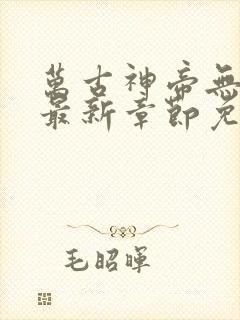 萬古神帝無
最新章節免
毛昭暉